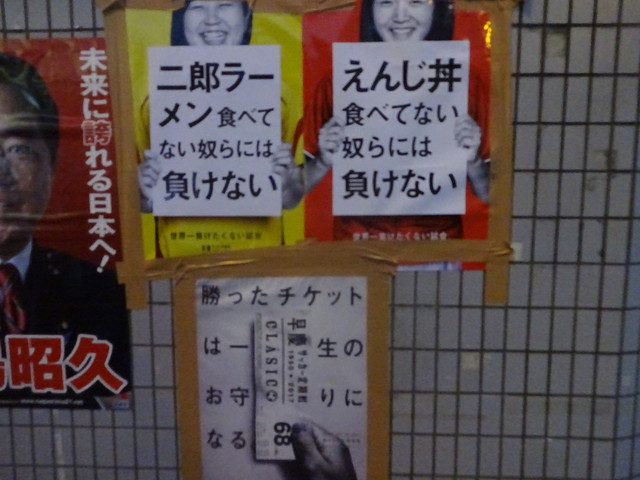 未来に誇れる日本へ！
昭久
二郎ラー
メン食べて
ない奴らには
負けない
世界一負けたくない試合
えんじ丼
食べてない
奴らには
負けない
世界一負けたくない試合
勝ったチケット
は一生の
お守りに
なる
早慶サッカー定期戦
CLASICO
68